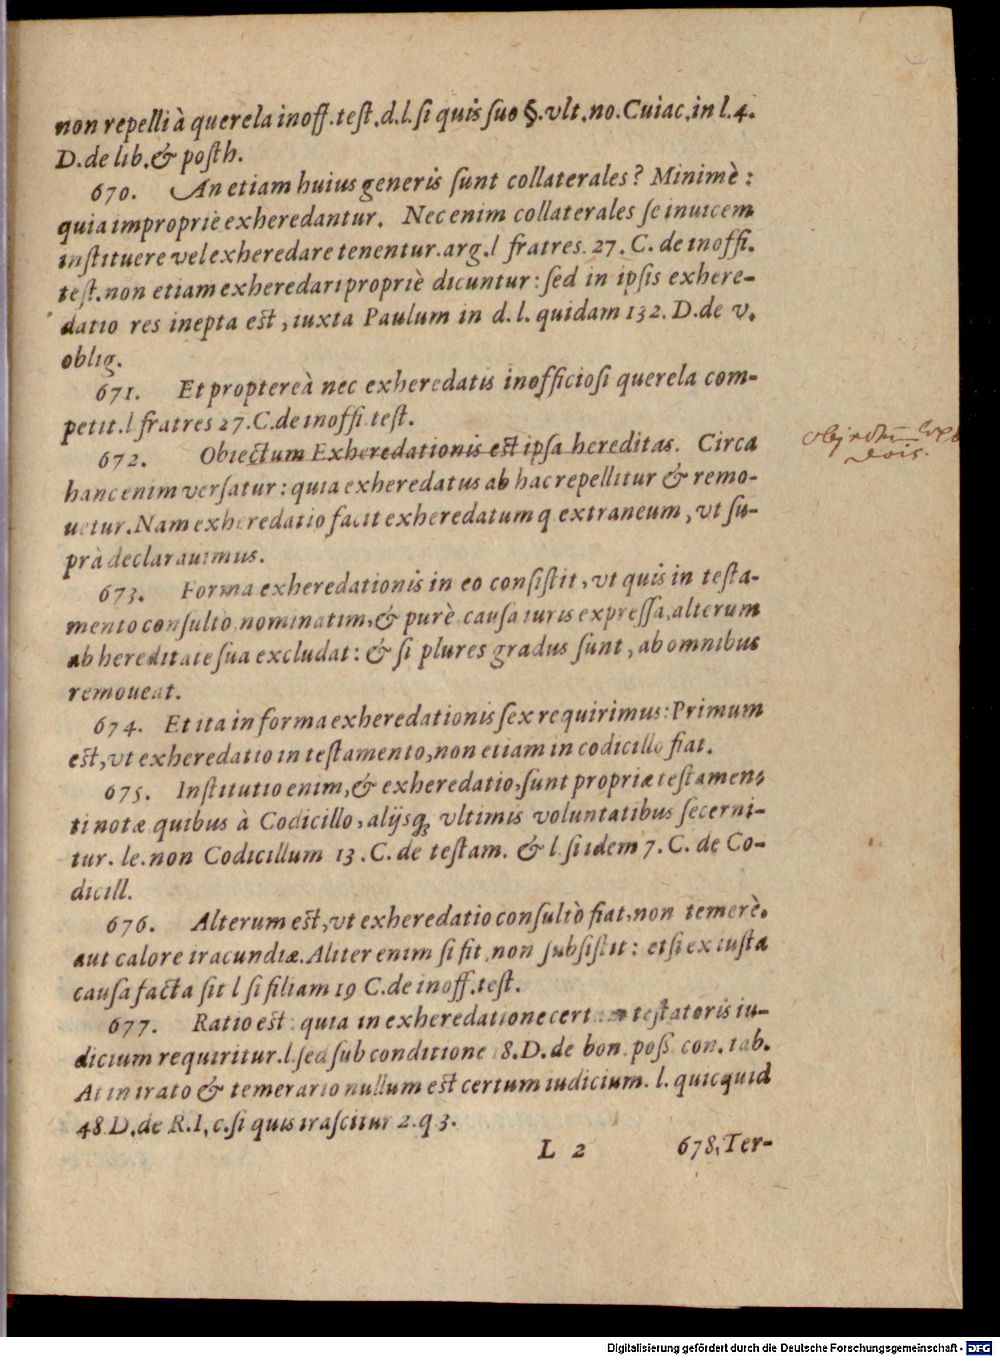 non repelli à querela inoff. test. d.l. si quis suo §. vlt. no. Cuiac. in l. 4.
D. de lib. & posth.
670. An etiam huius generis sunt collaterales? Minimè:
quia impropriè exheredantur. Nec enim collaterales se inuicem
instituere vel exheredare tenentur. arg. l fratres. 27. C. de inoffi.
test. non etiam exheredari propriè dicuntur: sed in ipsis exhere-
datio res inepta est, iuxta Paulum in d. l. quidam 132. D. de v.
oblig.
671. Et propterea̔ nec exheredatis inofficiosi querela com-
petit. l fratres 27. C. de inoffi test.
672. Obiectum Exheredationis est ipsa hereditas. Circa
hanc enim versatur: quia exheredatus ab hac repellitur & remo-
uetur. Nam exheredatio facit exheredatum q extraneum, vt su-
prà declarauimus.
673. Forma exheredationis in eo consistit, vt quis in testa-
mento consultò nominatim, & purè causa iuris expressa, alterum
ab hereditate sua excludat: & si plures gradus sunt, ab omnibus
remoueat.
674. Et ita in forma exheredationis sex requirimus: Primum
est, vt exheredatio in testamento, non etiam in codicillo fiat.
675. Institutio enim, & exheredatio, sunt propriæ testamen-
ti notæ quibus à Codicillo, alijsq; vltimis voluntatibus secerni-
tur. le. non Codicillum 13. C. de testam. & l si idem 7. C. de Co-
dicill.
676. Alterum est, vt exheredatio consultò fiat, non temerè,
aut calore iracundiæ. Aliter enim si fit non subsistit: etsi ex iusta
causa facta sit l si filiam 19 C. de inoff. test.
677. Ratio est: quia in exheredatione certum testatoris iu-
dicium requiritur. l. sed sub conditione 18. D. de bon. poss con. tab.
At in irato & temerario nullum est certum iudicium. l. quicquid
48 D. de R. I. c. si quis irascitur 2. q 3.
L 2 678. Ter-
Digitalisierung gefördert durch die Deutsche Forschungsgemeinschaft - DFG